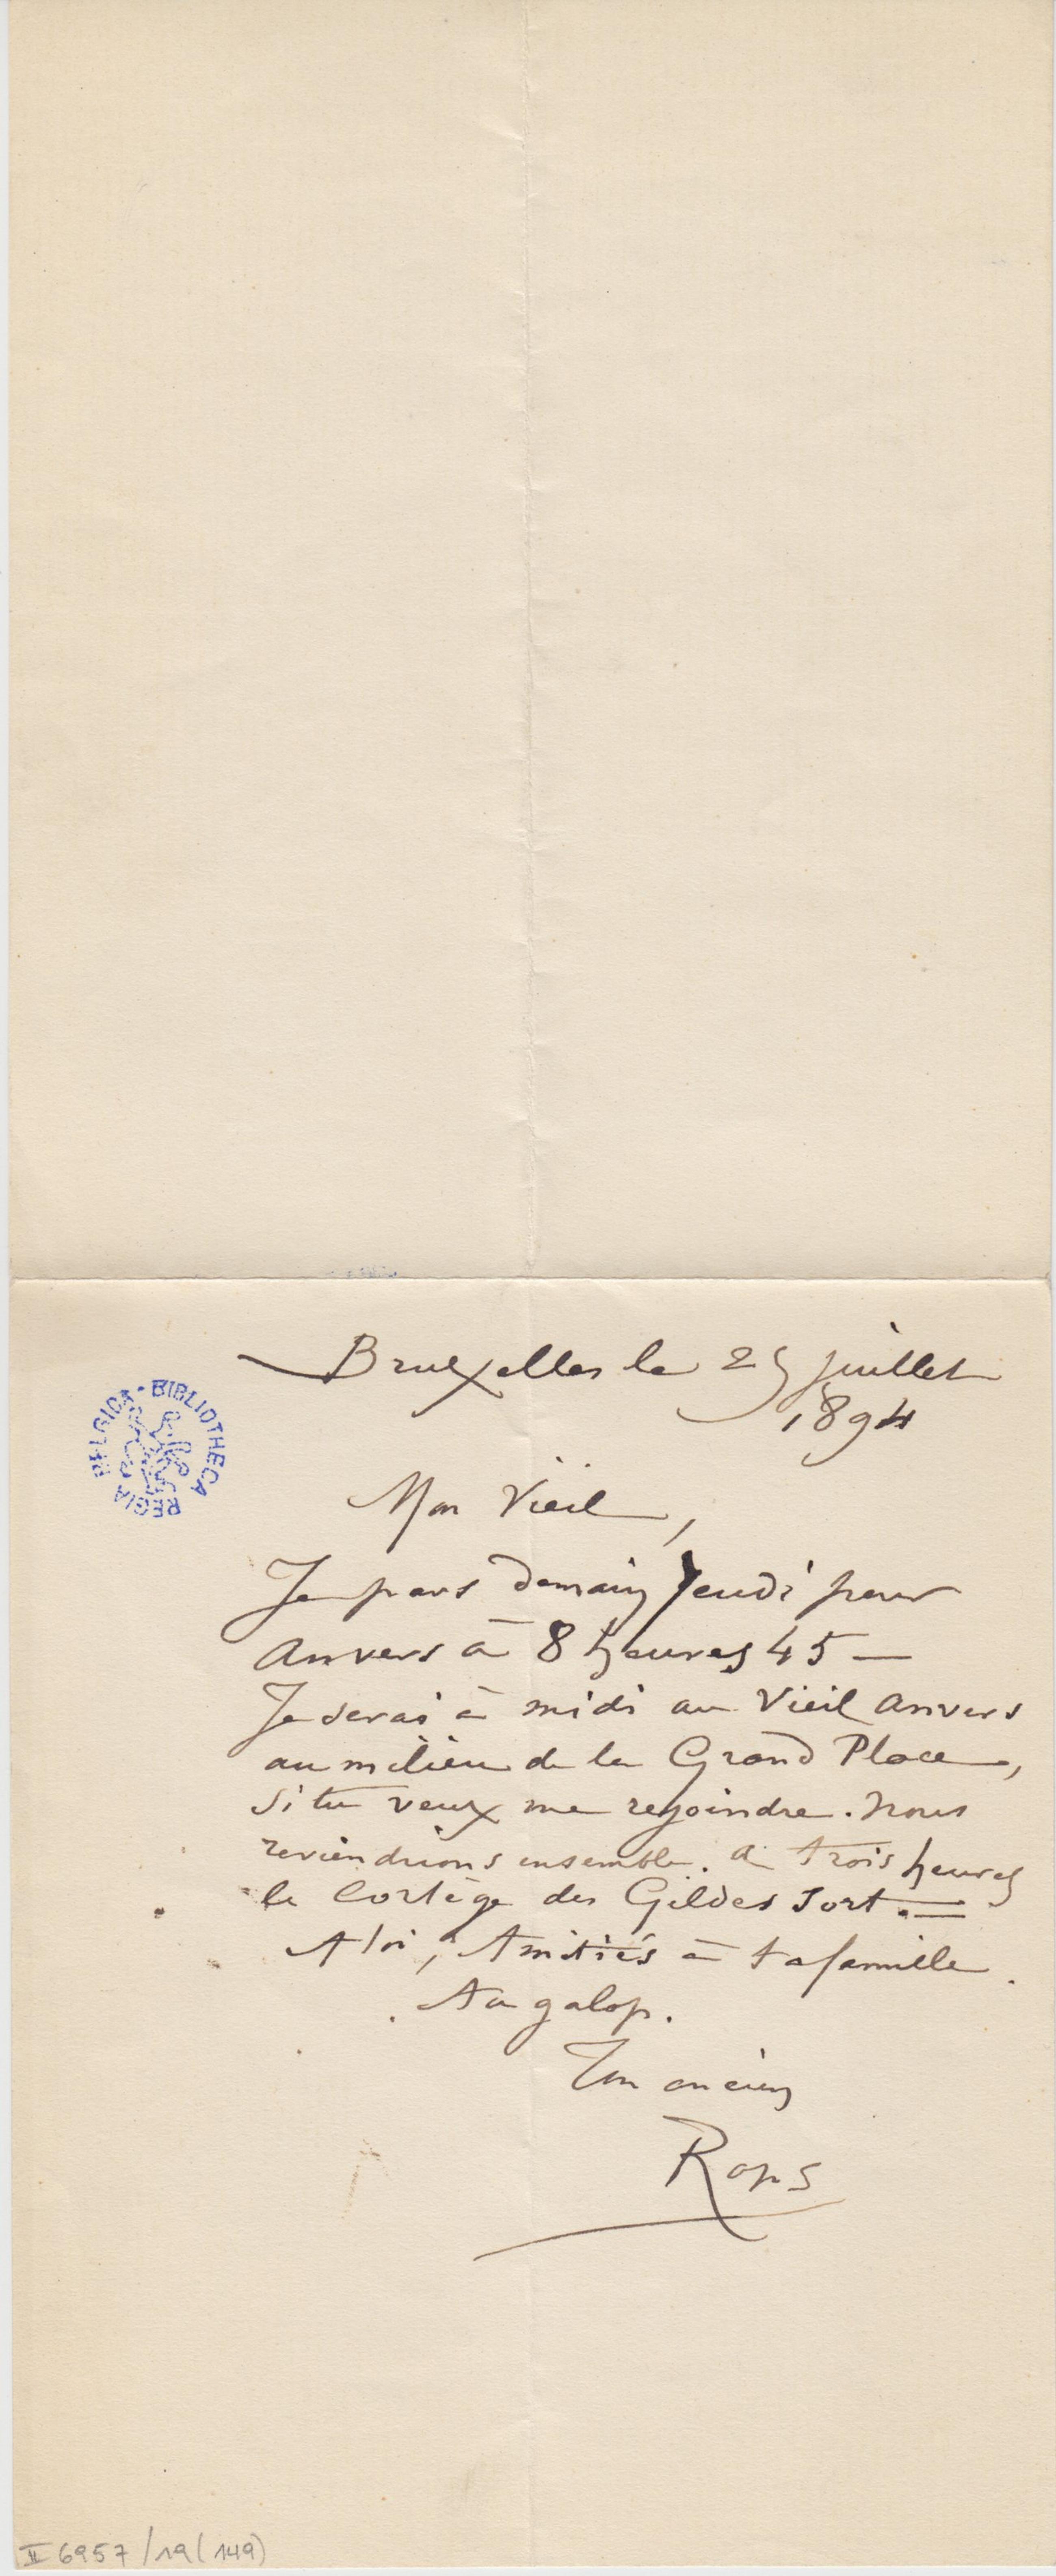 Bruxelles le 25 juillet
1894
Mon Vieil,
Je pars demain Jeudi pour
Anvers à 8 heures 45 —
Je serai à midi au Vieil Anvers
au milieu de la Grand Place,
si tu veux me rejoindre. Nous
reviendrions ensemble. A trois heures
le Cortège des Gildes sort. =
A toi, Amitiés à ta famille.
Au galop.
Ton ancien
Rops
BIBLIOTHECA REGIA BELGICA
II 6957/19(149)